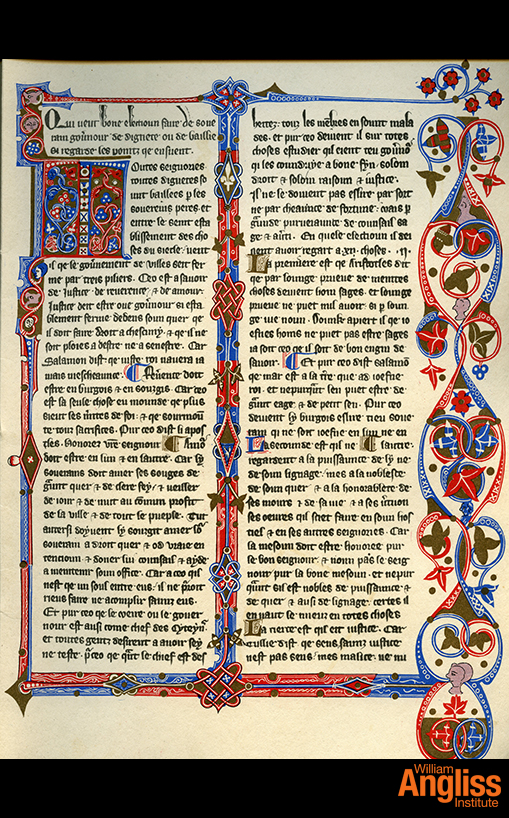 Qui veut bone eleccioun faire de soue
rain gouernour de digneté ou de baillie
si regarde les pointz qe ensuient.
Toutes seignories
toutes dignetes so
unt baillees p les
souereins peres et
entre se sent esta
blissement des cho
ses du siecle veent
me par treis pilers. Ceo est a sauoir
de Justice de reuerence & de amour.
Justice deit estre ou gouernour si esta
il doit faire droit a chescuny & qe il ne
soit ploies a destre ne a senestre. Car
Salamon dist qe iuste roi nauera ia
mais mescheaunce. Reuerence doit
estre en burgois & en sougis. Car ceo
est la seule chose en mounde qe plus
te touz sacrifices. Pur ceo dist li apos
tles. honorez vre seignour. Amour
doit estre en lun & en lautre. Car ly
souerains doit amer ses sougis de
graunt quer & de clere fey & veiller
de iour & de nuit au commun profit
de la ville & de tout le pueple. Tut
souerain a droit quer & od uraie en
tencioun & doner lui counsail & ayde
a meintenir soun office. Car a ceo qil
nest qe un soul entre eus il ne porroit
riens faire ne acomplir sauntz eus.
Et pur ceo qe le
nour est ausi come chef des
et toutes gentz desirent a auoir sey
ne teste p ceo qe quant le chief est des
hettez touz les membres en sount mala
des. et pur ceo deiuent il sur totes
choses estudier qil eient teu gouernour
qi les counduye a bone fyn solom
droit & solom raisoun & iustice.
Il ne le doiuent pas eslire par sort
ne par cheaunce de fortune mais par
graunde purueiaunce de counsail sa
ge & auisi. En quelle eleccioun il dei
uent auoir regart a xii choses.
La premiere est qe Aristotles dit
qe par longe prueue de meintes
choses deuient hom sages. et longe
prueue ne puet nul auoir si p loun
ge vie noun. Donke apiert il qe io
esnes homs ne puet pas estre sages
ia soit ceo qe il soit de bon engin de
sauoir. Et pur ceo dist salamon
qe mar est a la terre qe as ioesne
roi. et nepurquant len puet estre de
graunt eage & de petit sen. Pur ceo
deiuent ly burgois eslire tieu soue
rain qi ne soit ioesne en lun ne en
La seconde est qil ne lautre.
regardent a la puissaunce de ly ne
de soun lignage mes a la noblesce
de soun quer & a la honorablete de
ses mours & de sa uie & a ses uertuz
ses oeures qil siet faire en soun hos
tiel & en ses autres seignories. Car
la mesoun doit estre honoree pur
le bon seignour & noun pas le seig
nour pur la bone mesoun. et nepur
quant sil est nobles de puissaunce &
de quer & ausi de lignage certes il
en uaut le mieuz en totes choses
La tierce est qil eit iustice. Car
tulles dist qe sens saunz iustice
nest pas sens mes malice. ne nu
William
Angliss
Institute